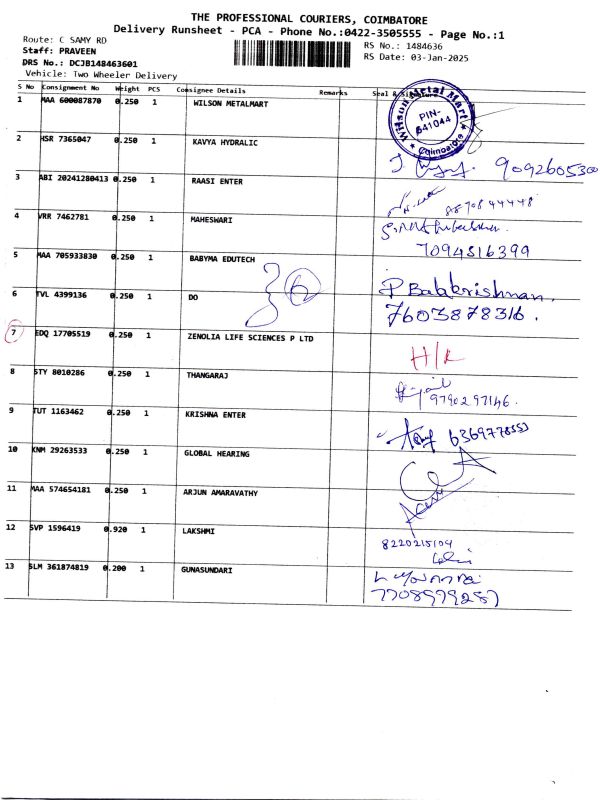 THE PROFESSIONAL COURIERS, COIMBATORE
Delivery Runsheet - PCA - Phone No.:0422-3505555 - Page No.:1
Route: C SAMY RD
RS No.: 1484636
Staff: PRAVEEN
RS Date: 03-Jan-2025
DRS No.: DCJB148463601
Vehicle: Two Wheeler Delivery
S No Consignment No Weight PCS Consignee Details Remarks Seal & Signature
1 MAA 600087870 0.250 1 WILSON METALMART
Wilson Metal Mart
PIN-
641044
Coimbatore
2 HSR 7365047 0.250 1 KAVYA HYDRALIC
9092605300
3 ABI 20241280413 0.250 1 RAASI ENTER
8870844448
4 VRR 7462781 0.250 1 MAHESWARI
7094516399
5 MAA 705933830 0.250 1 BABYMA EDUTECH
6
P Balakrishnan.
6 TVL 4399136 0.250 1 DO
7603878316.
7 EDQ 17705519 0.250 1 ZENOLIA LIFE SCIENCES P LTD
H/R
8 STY 8010286 0.250 1 THANGARAJ
9790297146.
9 TUT 1163462 0.250 1 KRISHNA ENTER
10 KNM 29263533 0.250 1 GLOBAL HEARING
11 MAA 574654181 0.250 1 ARJUN AMARAVATHY
12 SVP 1596419 0.920 1 LAKSHMI
8220215104
13 SLM 361874819 0.200 1 GUNASUNDARI
7708979287